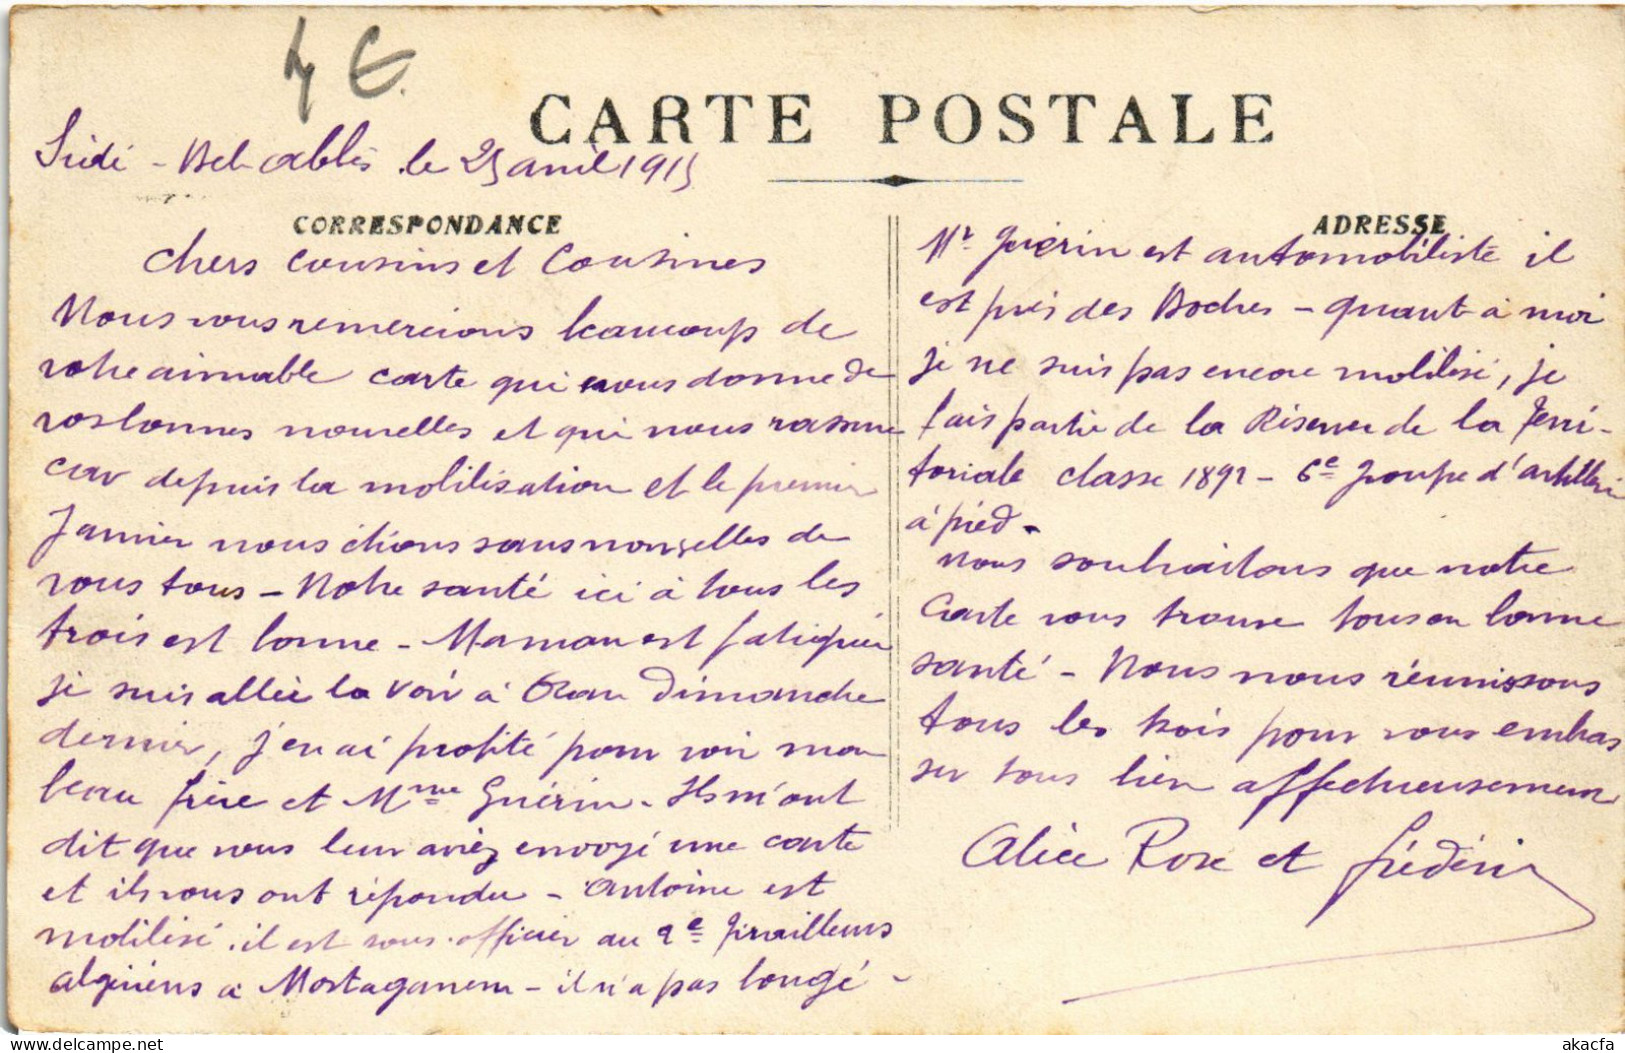 4 €.
CARTE POSTALE
Sidi-Bel-abbès le 25 avril 1915
CORRESPONDANCE
Chers Cousins et Cousines
Nous vous remercions beaucoup de
votre aimable carte qui nous donne de
vos bonnes nouvelles et qui nous rassure
car depuis la mobilisation et le premier
Janvier nous étions sans nouvelles de
vous tous - Notre santé ici à tous les
trois est bonne - Maman est fatiguée
je suis allée la voir à Oran Dimanche
dernier, j'en ai profité pour voir mon
beau frère et Mme Guérin. Ils m'ont
dit que vous leur aviez envoyé une carte
et ils vous ont répondu - Antoine est
mobilisé. il est sous-officier au 2e Tirailleurs
algériens à Mostaganem - il n'a pas bougé -
ADRESSE
Mr Guérin est automobiliste il
est près des Boches - Quant à moi
je ne suis pas encore mobilisé, je
fais partie de la Réserve de la Terri-
toriale classe 1891 - 6e groupe d'artillerie
à pied.
Nous souhaitons que notre
Carte vous trouve tous en bonne
santé - Nous nous réunissons
tous les trois pour vous embras
ser tous bien affectueusement
Alice Rose et Frédéric
akacfa